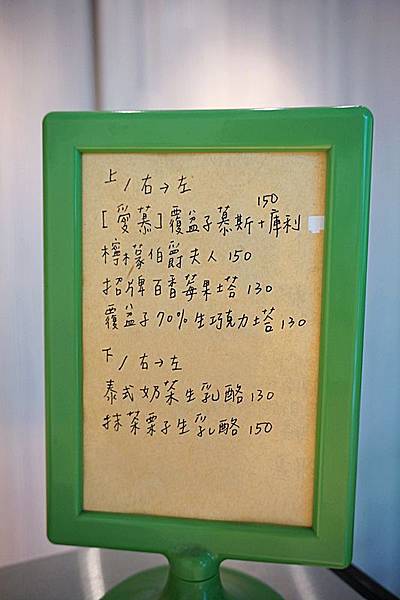 上/右→左
150
[愛慕]覆盆子慕斯+庫利
檸檬伯爵夫人 150
招牌百香莓果塔 130
覆盆子70%生巧克力塔 130
下/右→左
泰式奶茶生乳酪 130
抹茶栗子生乳酪 150